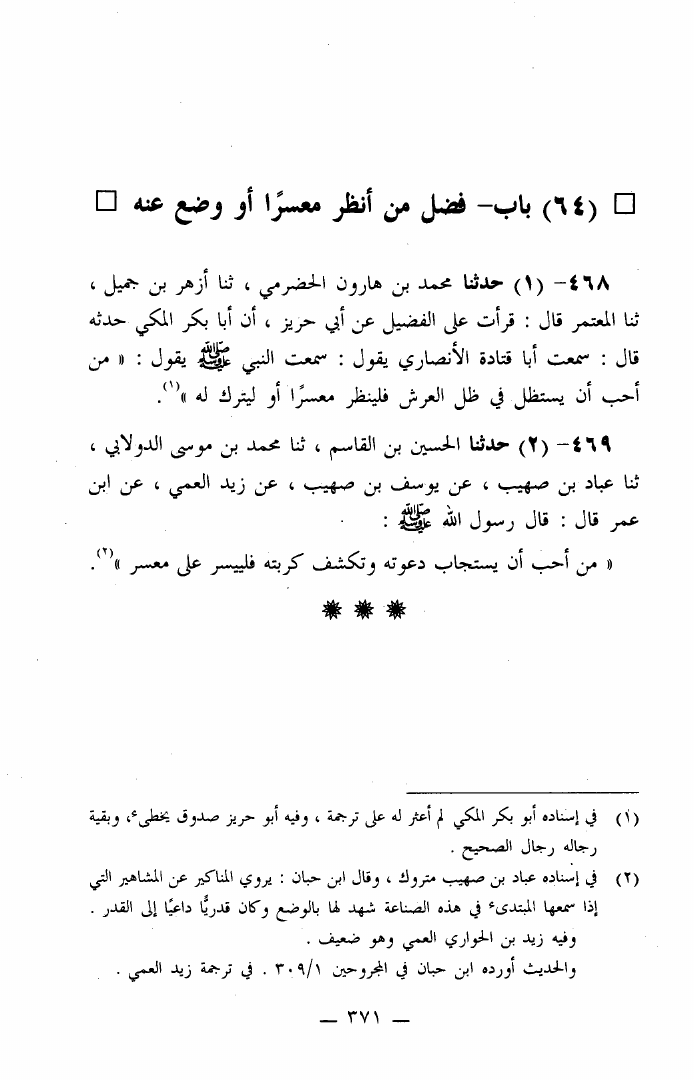 □ (٦٤) باب- فضل من أنظر معسرًا أو وضع عنه □
٤٦٨- (١) حدثنا محمد بن هارون الحضرمي ، ثنا أزهر بن جميل ،
ثنا المعتمر قال : قرأت على الفضيل عن أبي حريز ، أن أبا بكر المكي حدثه
قال : سمعت أبا قتادة الأنصاري يقول : سمعت النبي ﷺ يقول : « من
أحب أن يستظل في ظل العرش فلينظر معسرًا أو ليترك له »(١).
٤٦٩- (٢) حدثنا الحسين بن القاسم ، ثنا محمد بن موسى الدولابي ،
ثنا عباد بن صهيب ، عن يوسف بن صهيب ، عن زيد العمي ، عن ابن
عمر قال : قال رسول الله ﷺ :
« من أحب أن يستجاب دعوته وتكشف كربته فلييسر على معسر »(٢).
(١) في إسناده أبو بكر المكي لم أعثر له على ترجمة ، وفيه أبو حريز صدوق يخطىء، وبقية
رجاله رجال الصحيح .
(٢) في إسناده عباد بن صهيب متروك ، وقال ابن حبان : يروي المناكير عن المشاهير التي
إذا سمعها المبتدىء في هذه الصناعة شهد لها بالوضع وكان قدريًّا داعيًا إلى القدر .
وفيه زيد بن الحواري العمي وهو ضعيف .
والحديث أورده ابن حبان في المجروحين ٣٠٩/١ . في ترجمة زيد العمي .
— ٣٧١ —